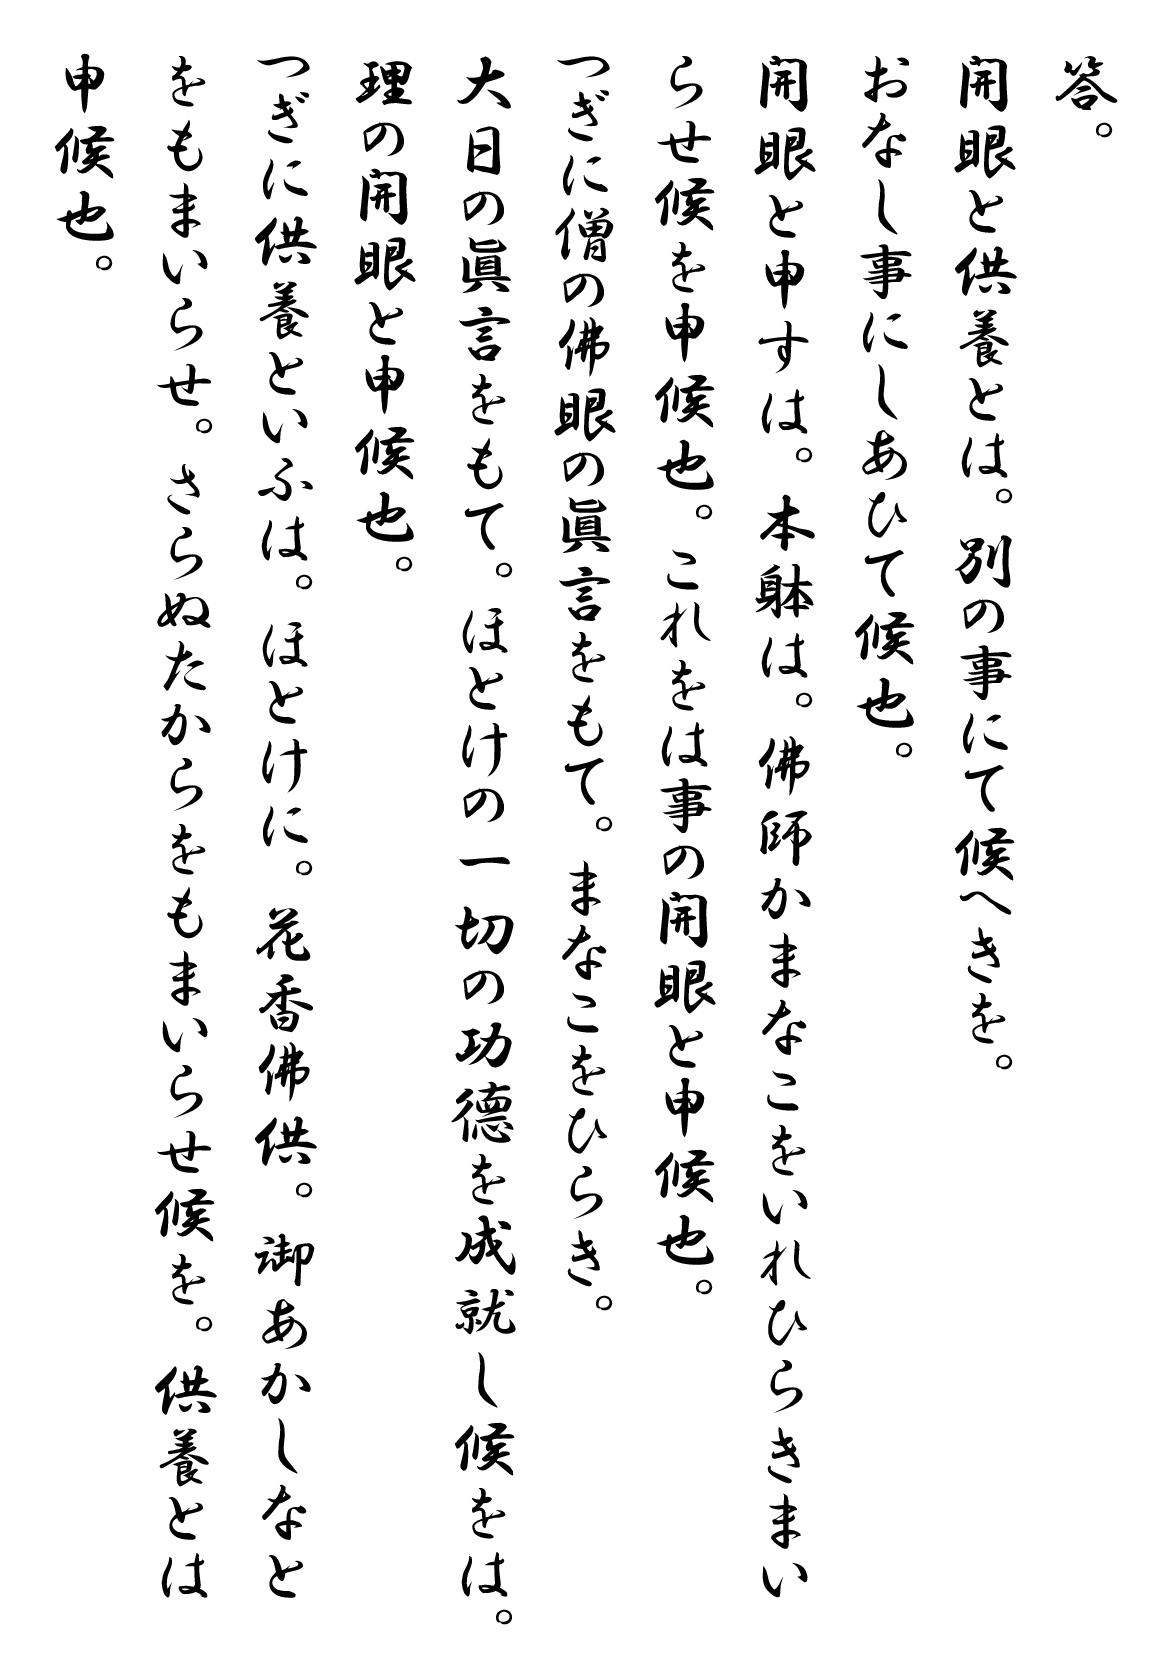 答。
開眼と供養とは。別の事にて候へきを。
おなし事にしあひて候也。
開眼と申すは。本躰は。佛師かまなこをいれひらきまい
らせ候を申候也。これをは事の開眼と申候也。
つぎに僧の佛眼の眞言をもて。まなこをひらき。
大日の眞言をもて。ほとけの一切の功德を成就し候をは。
理の開眼と申候也。
つぎに供養といふは。ほとけに。花香佛供。御あかしなと
をもまいらせ。さらぬたからをもまいらせ候を。供養とは
申候也。